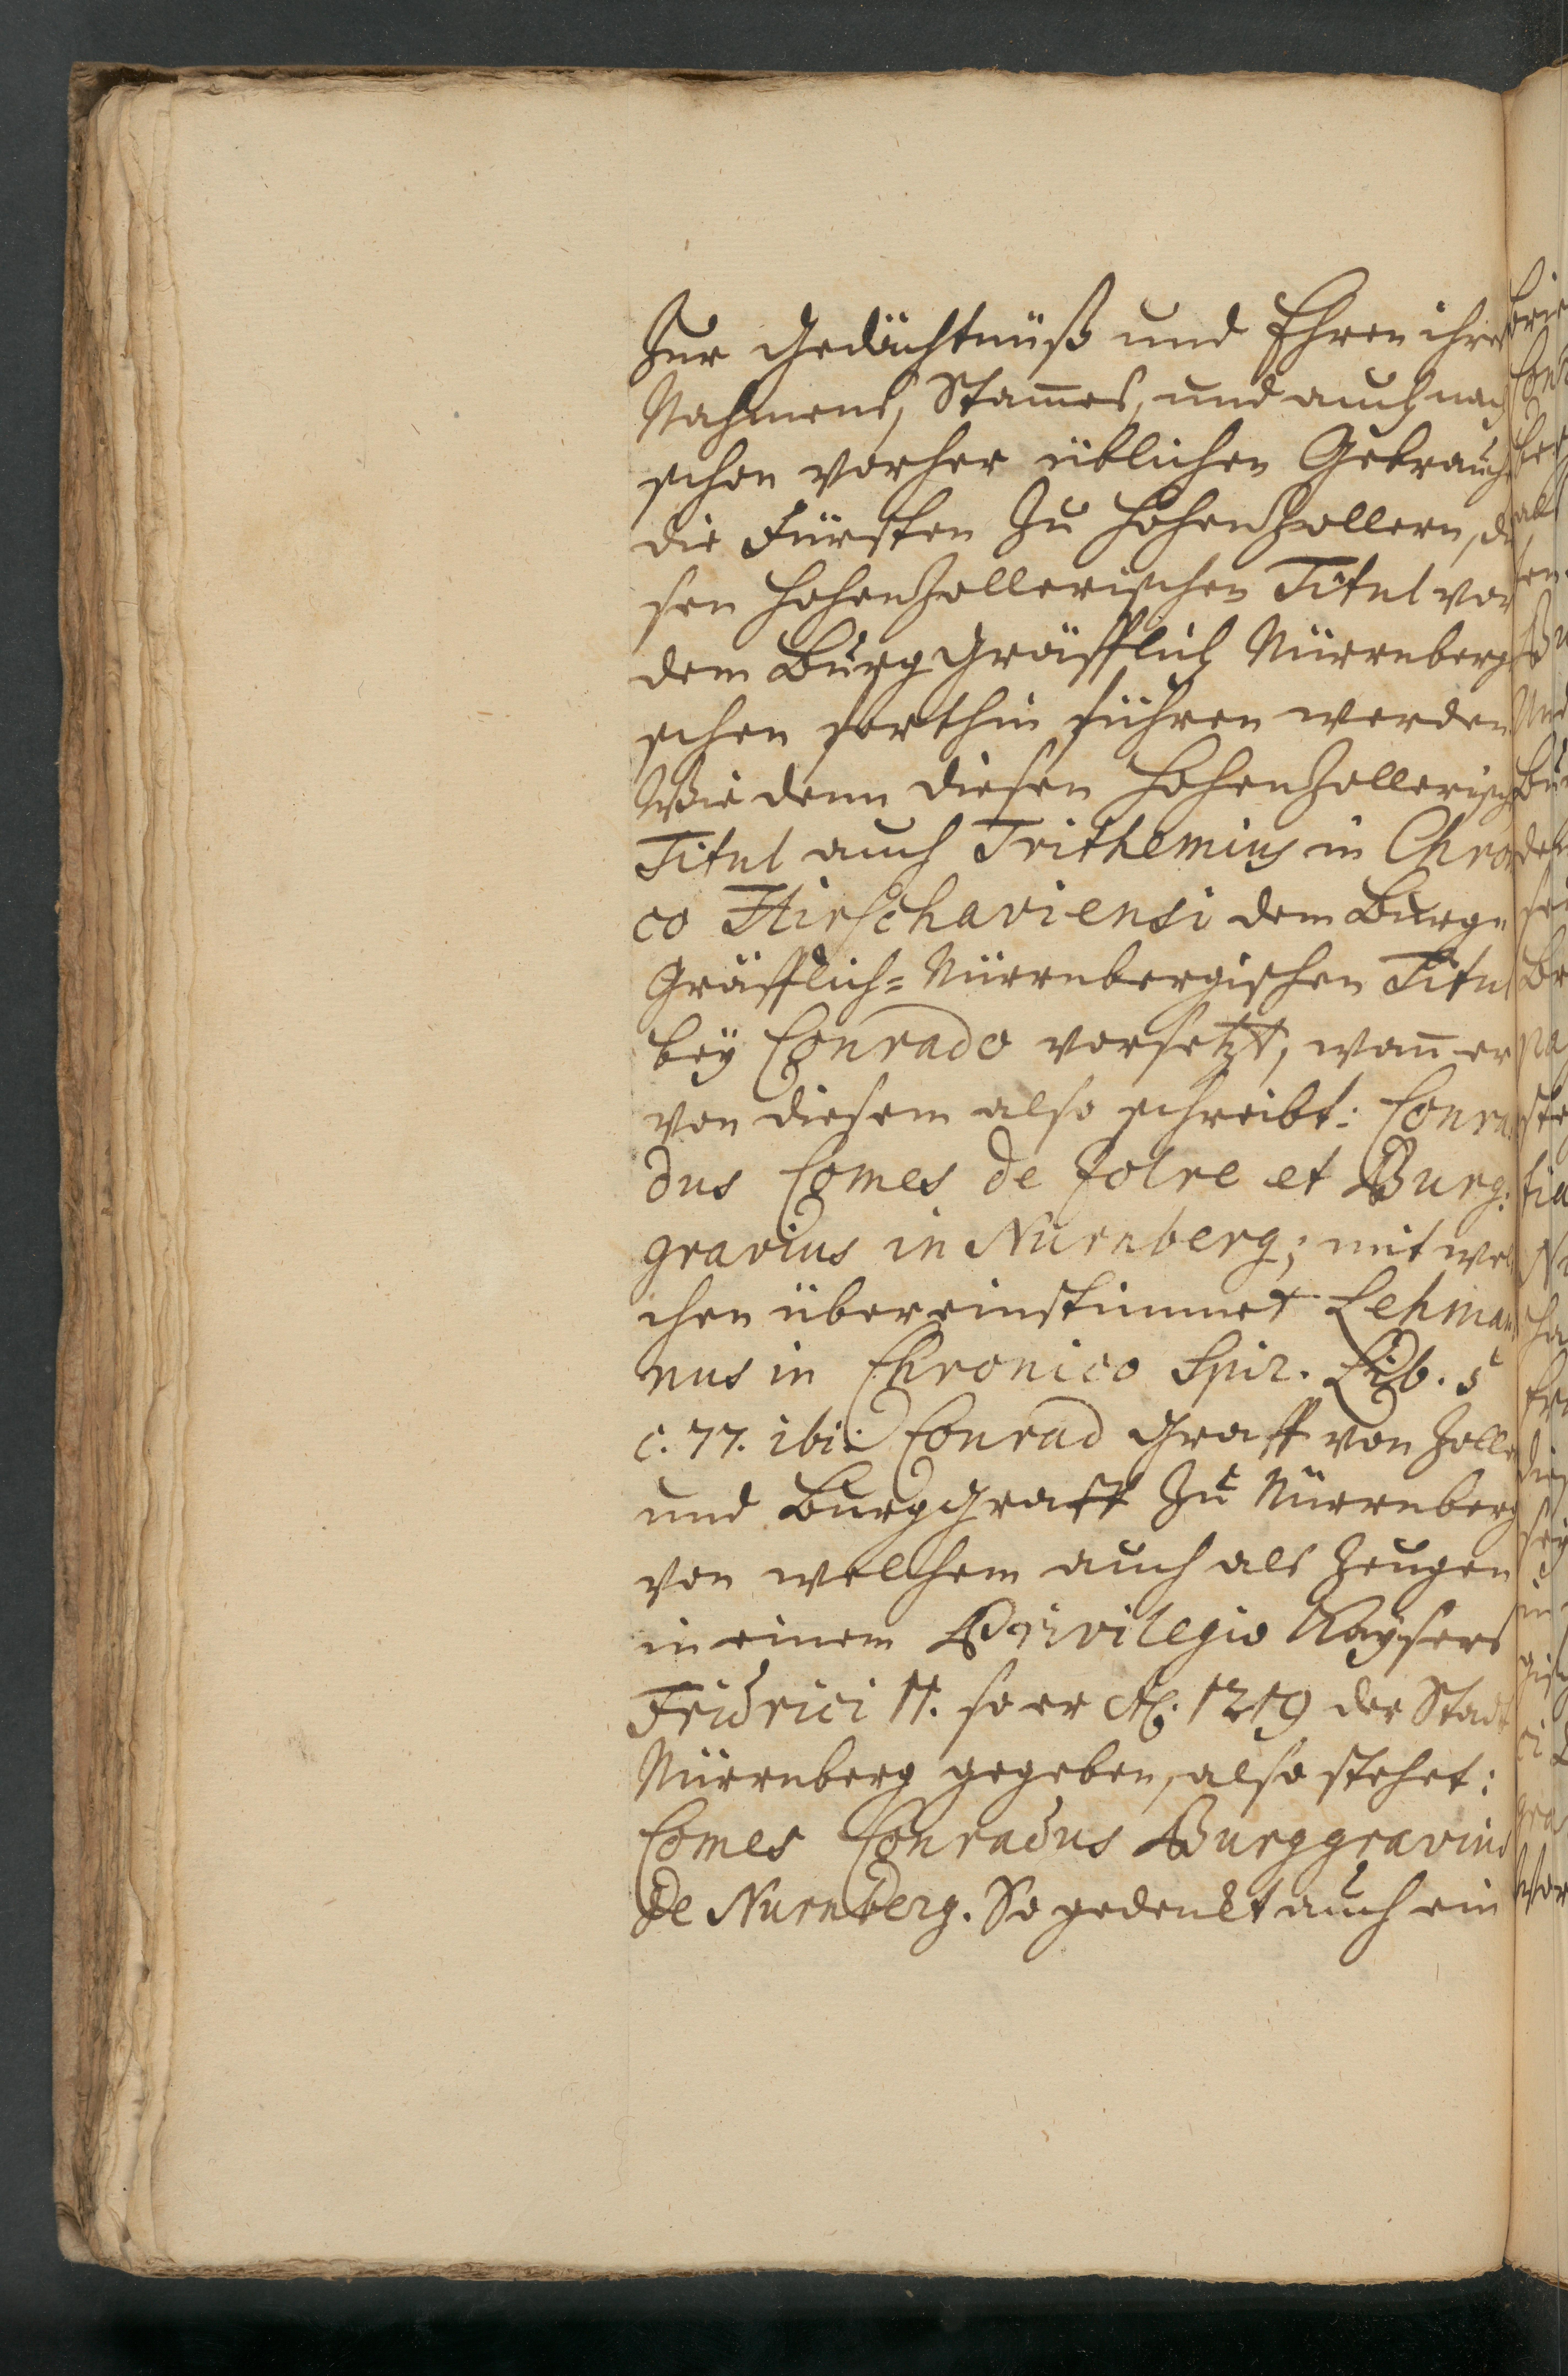 Zur Gedächtnüß und Ehren ihres
Nahmens, Stam̅es, und auch nach
schon vorher üblichen Gebrauch
die Fürsten zu Hohenzollern, die
sen Hohenzollerischen Titul vor
dem Burggräfflich Nürnbergi
schen forthin führen werden
Wie denn diesen Hohenzollerisch
Titul auch Trithemius in Chroni
co Hirschaviensi dem Burg=
Gräfflich=Nürnbergischen Titul
bey Conrado vorsetzt, wan̅ er
von diesem also schreibt: Conra
dus Comes de Zolre et Burg:
gravius in Nurnberg; mit wel
chen übereinstimmet Lehman
nus in Chronico Spir. Lib. 5
c. 77. ibi: Conrad Graff von Zolle
und Burggraff zu Nürnberg
von welchem auch als Zeugen
in einem Privilegio Kaysers
Fridrici II. so er Aō. 1219 der Stadt
Nürnberg gegeben, also stehet:
Comes Conradus Burggravius
de Nurnberg. So gedenkt auch ein